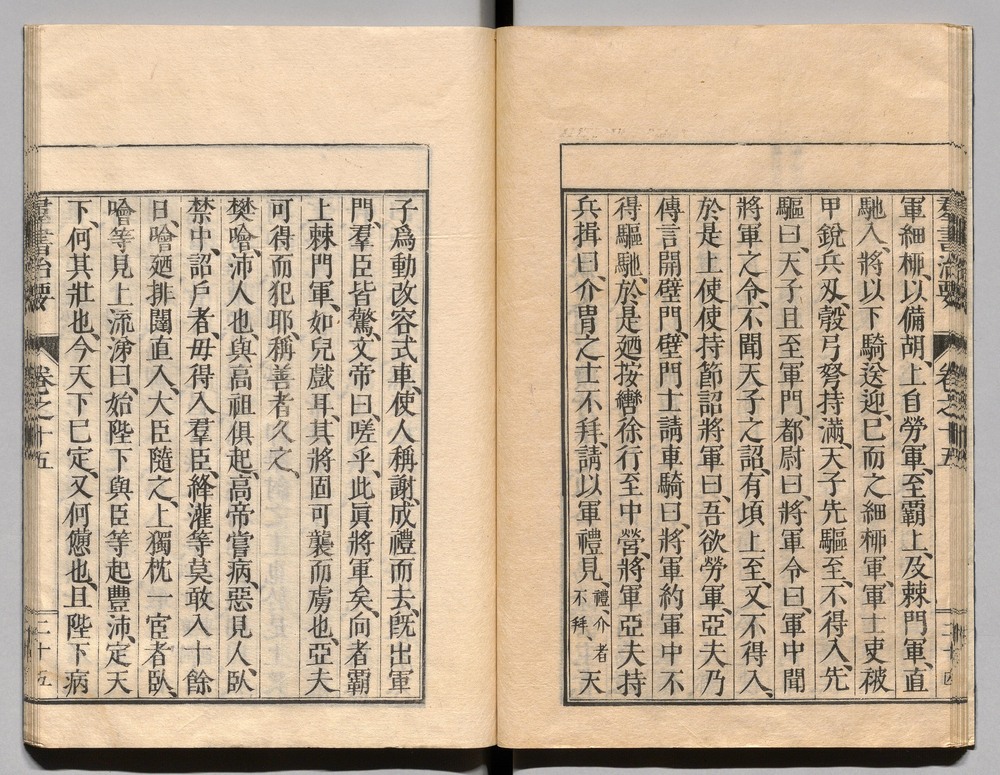 羣書治要 卷之十五 二十四
軍細柳、以備胡、上自勞軍、至霸上、及棘門軍、直
馳入、將以下騎送迎、已而之細柳軍、軍士吏被
甲銳兵刄、彀弓弩持滿、天子先驅至、不得入、先
驅曰、天子且至軍門、都尉曰、將軍令曰、軍中聞
將軍之令、不聞天子之詔、有頃上至、又不得入、
於是上使使持節詔將軍曰、吾欲勞軍、亞夫乃
傳言開壁門、壁門士請車騎曰、將軍約軍中不
得驅馳、於是廼按轡徐行至中營、將軍亞夫持
兵揖曰、介冑之士不拜、請以軍禮見、禮介者不拜、天
子爲動改容式車、使人稱謝、成禮而去、旣出軍
門、羣臣皆驚、文帝曰、嗟乎、此眞將軍矣、向者霸
上棘門軍、如兒戲耳、其將固可襲而虜也、亞夫
可得而犯耶、稱善者久之、
樊噲、沛人也、與高祖俱起、高帝嘗病、惡見人、臥
禁中、詔戶者、毋得入羣臣、絳灌等莫敢入十餘
日、噲廼排闥直入、大臣隨之、上獨枕一宦者臥、
噲等見上流涕曰、始陛下與臣等起豐沛、定天
下、何其壯也、今天下已定、又何憊也、且陛下病
羣書治要 卷之十五 二十五